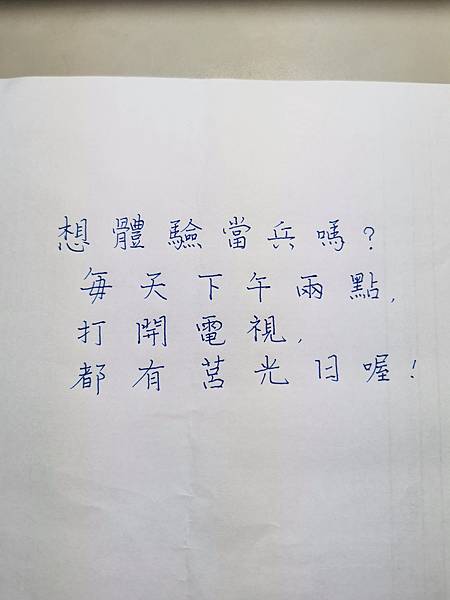 想體驗當兵嗎?
每天下午兩點,
打開電視,
都有莒光日喔!